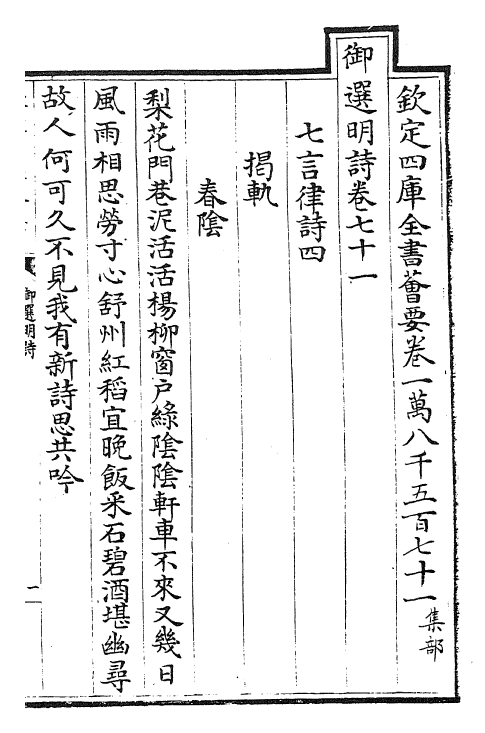 欽定四庫全書薈要卷一萬八千五百七十一 集部
御選明詩卷七十一
七言律詩四
揭軌
春陰
梨花門巷泥活活楊柳窗戶綠陰陰軒車不來又幾日
風雨相思勞寸心舒州紅稻宜晚飯采石碧酒堪幽尋
故人何可久不見我有新詩思共吟
御選明詩
一